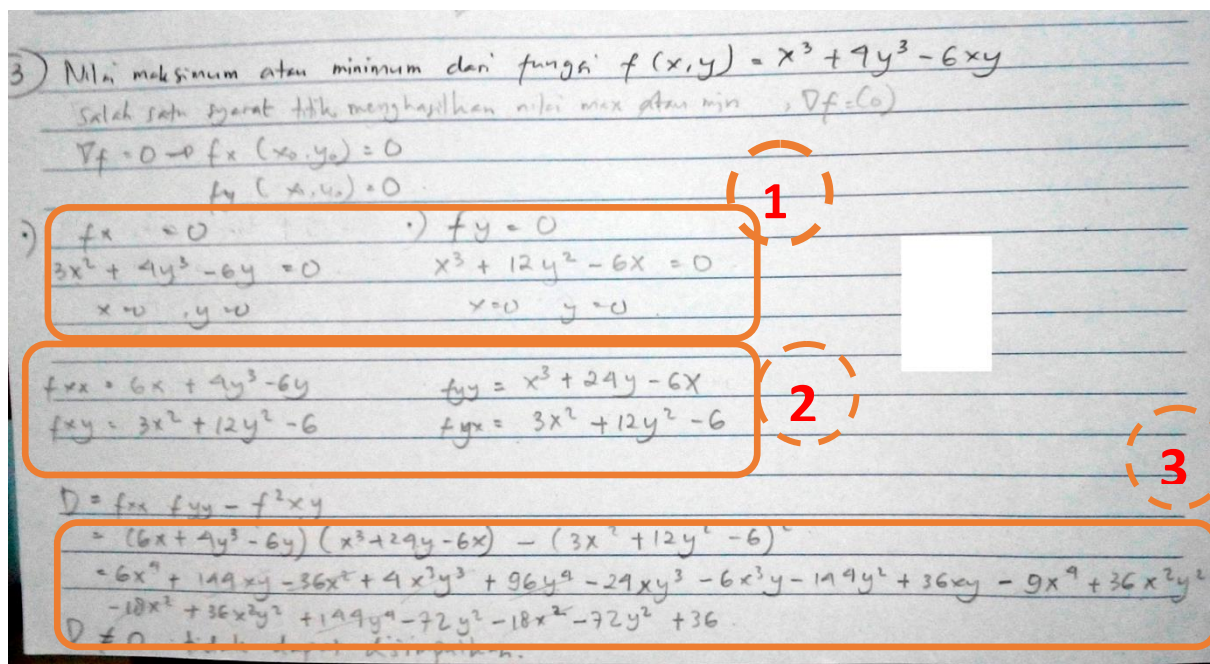 3) Nilai maksimum atau minimum dari fungsi f (x,y) = x³ + 4y³ - 6xy
Salah satu syarat titik menghasilkan nilai max atau min , ∇f = (0)
∇f = 0 → fx (x₀,y₀) = 0
fy (x₀,y₀) = 0
1
•) fx = 0 •) fy = 0
3x² + 4y³ - 6y = 0 x³ + 12y² - 6x = 0
x=0 , y=0 x=0 y=0
fxx = 6x + 4y³ - 6y fyy = x³ + 24y - 6x
2
fxy = 3x² + 12y² - 6 fyx = 3x² + 12y² - 6
3
D = fxx fyy - f²xy
= (6x + 4y³ - 6y) (x³ + 24y - 6x) - (3x² + 12y² - 6)²
= 6x⁴ + 144xy - 36x² + 4x³y³ + 96y⁴ - 24xy³ - 6x³y - 144y² + 36xy - 9x⁴ + 36x²y²
- 18x² + 36x²y² + 144y⁴ - 72y² - 18x² - 72y² + 36
D ≠ 0 tidak dapat disimpulkan.